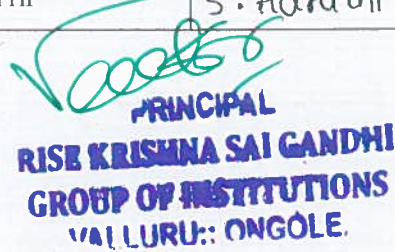 S.
PRINCIPAL
RISE KRISHNA SAI GANDHI
GROUP OF INSTITUTIONS
VALLURU:: ONGOLE.